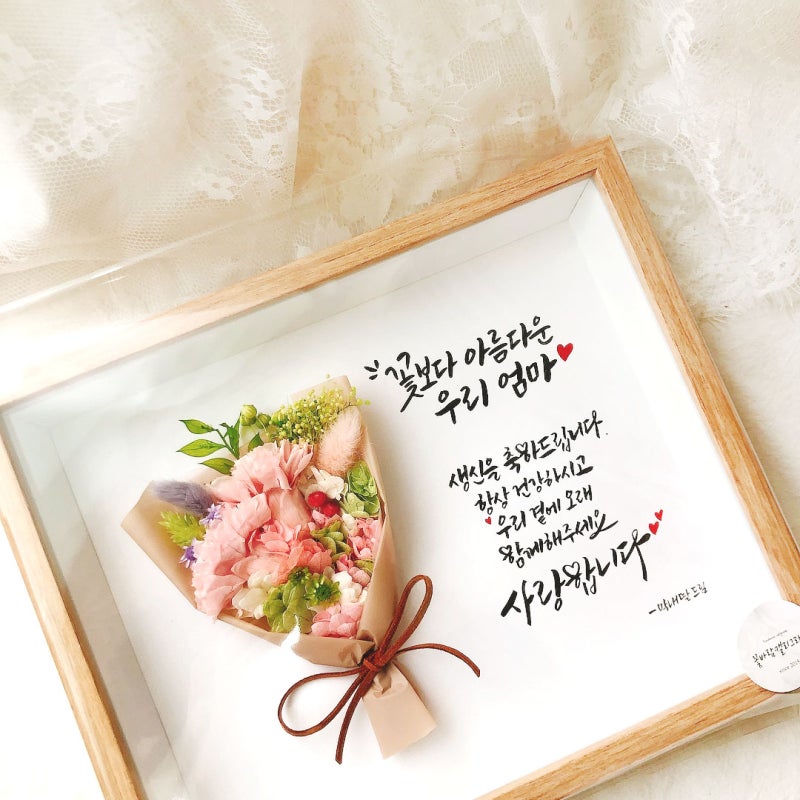 꽃보다 아름다운
우리 엄마
생신을 축하드립니다.
항상 건강하시고
우리 곁에 오래
함께해주세요
사랑합니다
-막내딸 드림
꽃바람캘리그라